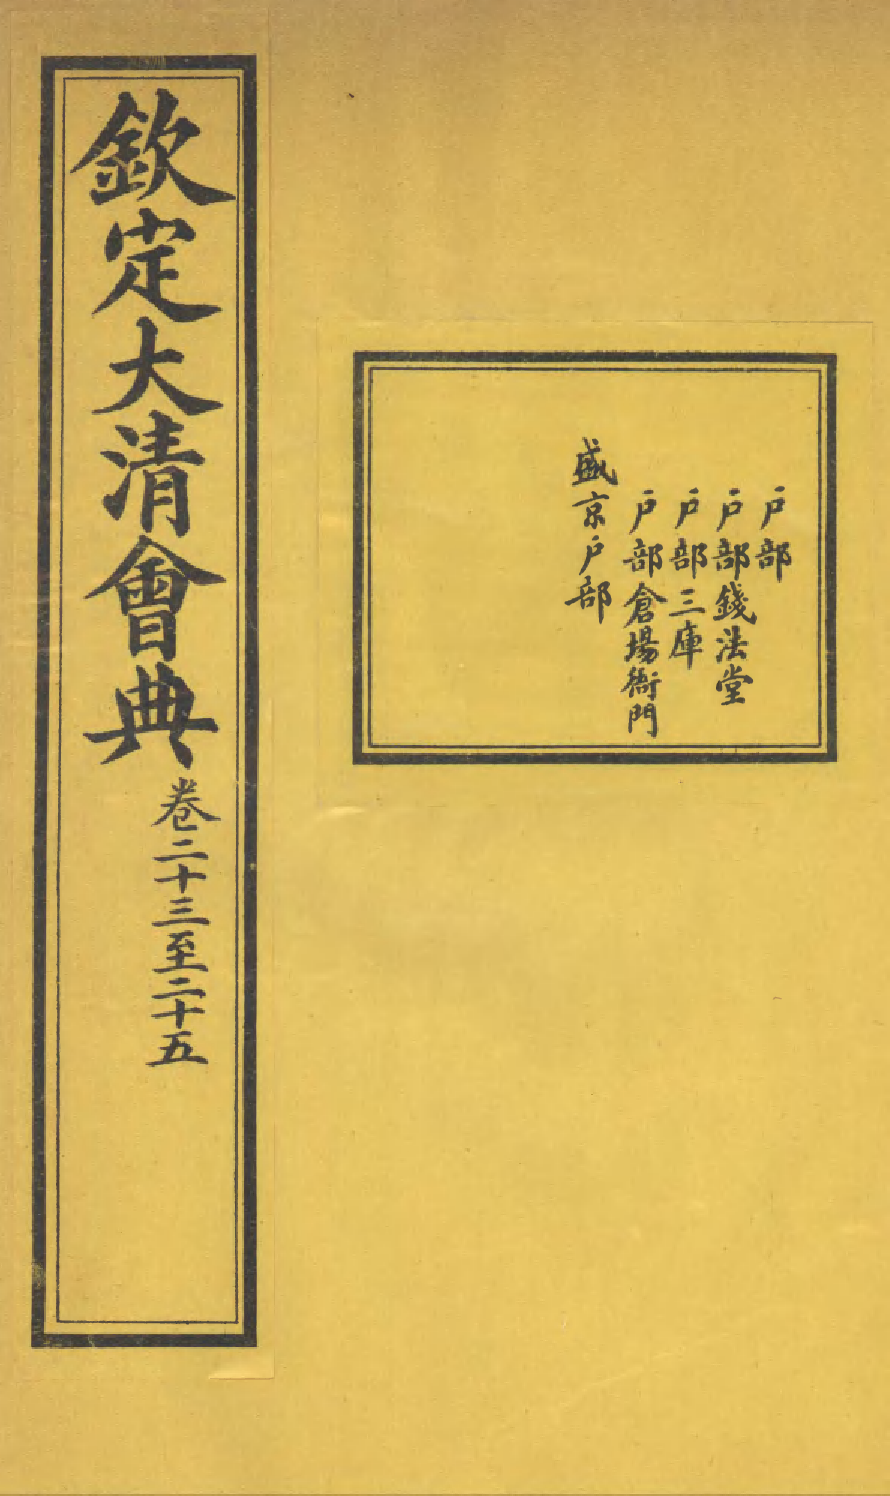 戶部
戶部錢法堂
戶部三庫
戶部倉場衙門
盛京戶部
欽定大清會典卷二十三至二十五